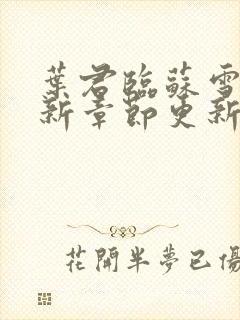 葉君臨蘇雪
新章節更新
花開半夢已傷